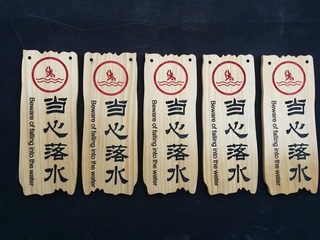 当心落水
Beware of falling into the water
当心落水
Beware of falling into the water
当心落水
Beware of falling into the water
当心落水
Beware of falling into the water
当心落水
Beware of falling into the water